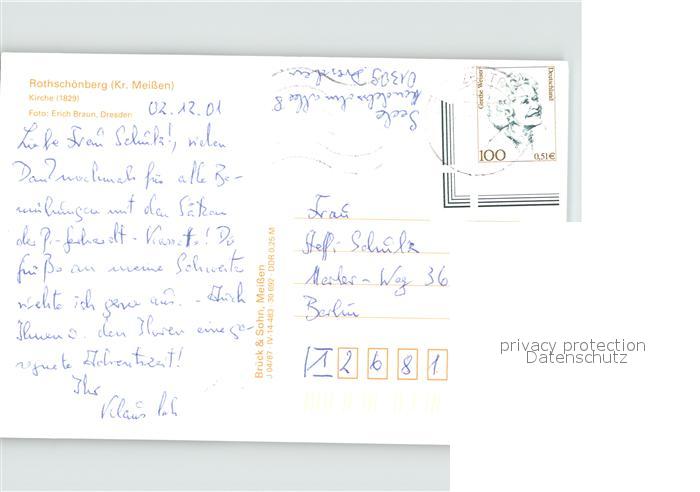 Rothschönberg (Kr. Meißen)
Kirche (1829)
Foto: Erich Braun, Dresden
02.12.01
Liebe Frau Schulz!, vielen
Dank nochmals für alle Be-
mühungen mit den Sätzen
der P.-Gerhardt-! Die
Grüße an meine Schwester
richte ich gerne aus. - Auch
Ihnen u. den Ihren eine ge-
segnete Adventszeit!
Ihr
Klaus
Brück & Sohn, Meißen
J 04/87 · IV-14-483 · 30 692 · DDR 0,25 M
01309 Dresden
Grethe Weiser
Deutschland
100
0,51€
Frau
Steffi Schulz
Weg 36
Berlin
12681
privacy protection
Datenschutz